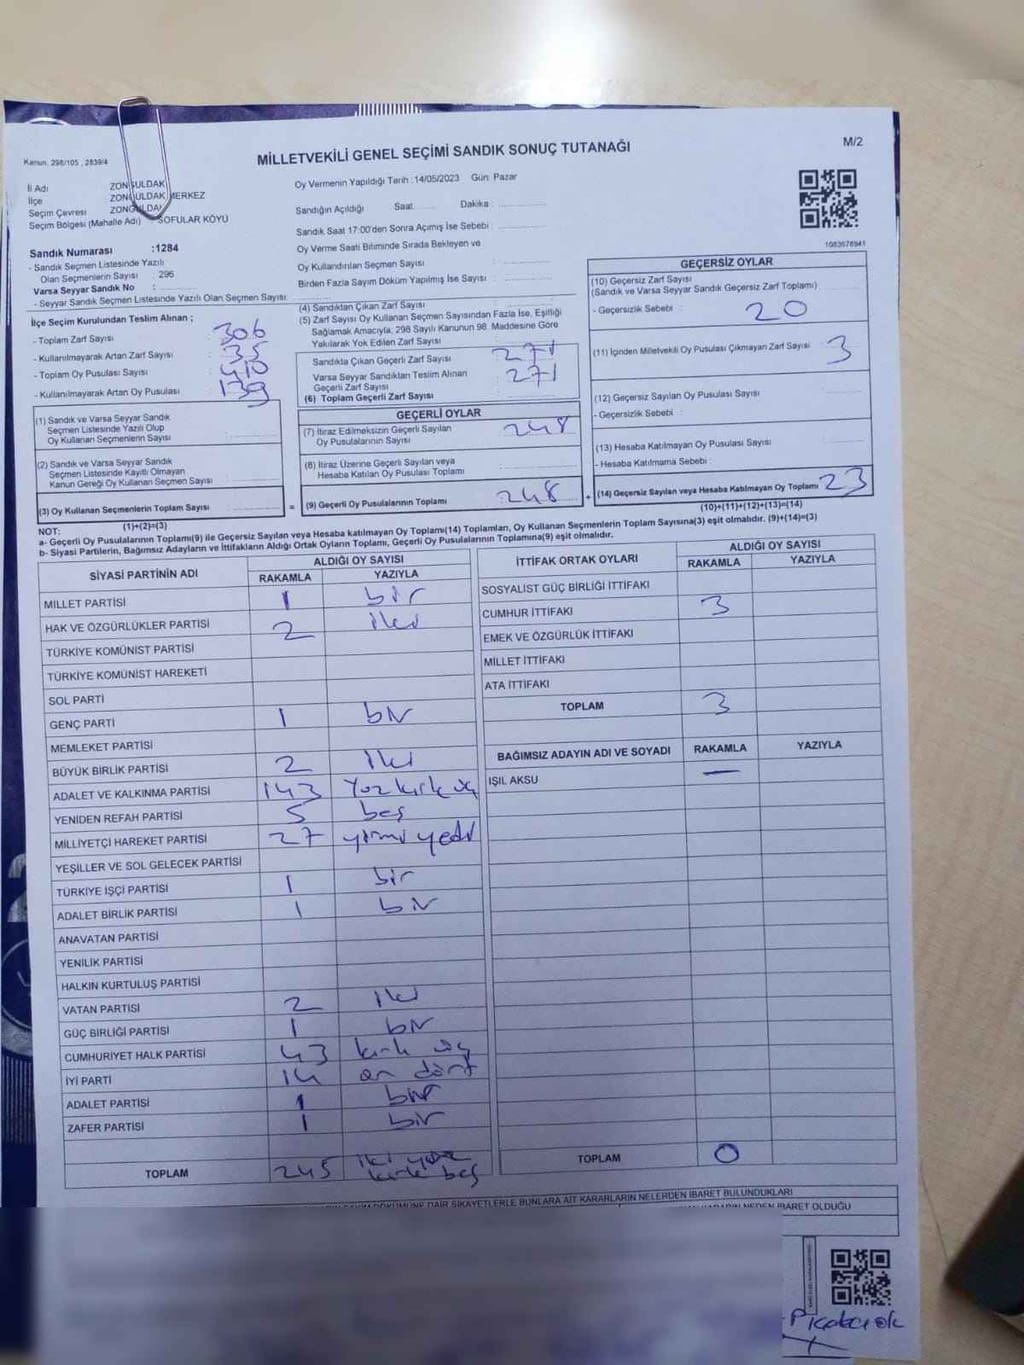 MİLLETVEKİLİ GENEL SEÇİMİ SANDIK SONUÇ TUTANAĞI
M/2
Kanun. 298/105 , 2839/4
İl Adı ZONGULDAK
İlçe ZONGULDAK MERKEZ
Seçim Çevresi ZONGULDAK
Seçim Bölgesi (Mahalle Adı) SOFULAR KÖYÜ
Sandık Numarası :1284
- Sandık Seçmen Listesinde Yazılı
Olan Seçmenlerin Sayısı : 296
Varsa Seyyar Sandık No :
- Seyyar Sandık Seçmen Listesinde Yazılı Olan Seçmen Sayısı:
Oy Vermenin Yapıldığı Tarih :14/05/2023 Gün: Pazar
Sandığın Açıldığı Saat: Dakika :
Sandık Saat 17:00'den Sonra Açımış İse Sebebi :
Oy Verme Saati Bitiminde Sırada Bekleyen ve
Oy Kullandırılan Seçmen Sayısı :
Birden Fazla Sayım Döküm Yapılmış İse Sayısı :
1083678941
İlçe Seçim Kurulundan Teslim Alınan ;
- Toplam Zarf Sayısı : 306
- Kullanılmayarak Artan Zarf Sayısı : 35
- Toplam Oy Pusulası Sayısı : 410
- Kullanılmayarak Artan Oy Pusulası : 139
(1) Sandık ve Varsa Seyyar Sandık
Seçmen Listesinde Yazılı Olup
Oy Kullanan Seçmenlerin Sayısı :
(2) Sandık ve Varsa Seyyar Sandık
Seçmen Listesinde Kayıtlı Olmayan
Kanun Gereği Oy Kullanan Seçmen Sayısı :
(3) Oy Kullanan Seçmenlerin Toplam Sayısı :
(1)+(2)=(3)
(4) Sandıktan Çıkan Zarf Sayısı :
(5) Zarf Sayısı Oy Kullanan Seçmen Sayısından Fazla İse, Eşitliği
Sağlamak Amacıyla, 298 Sayılı Kanunun 98. Maddesine Göre
Yakılarak Yok Edilen Zarf Sayısı :
Sandıkta Çıkan Geçerli Zarf Sayısı : 271
Varsa Seyyar Sandıktan Teslim Alınan
Geçerli Zarf Sayısı : 271
(6) Toplam Geçerli Zarf Sayısı :
GEÇERLİ OYLAR
(7) İtiraz Edilmeksizin Geçerli Sayılan
Oy Pusulalarının Sayısı : 248
(8) İtiraz Üzerine Geçerli Sayılan veya
Hesaba Katılan Oy Pusulası Toplamı :
(9) Geçerli Oy Pusulalarının Toplamı : 248
GEÇERSİZ OYLAR
(10) Geçersiz Zarf Sayısı
(Sandık ve Varsa Seyyar Sandık Geçersiz Zarf Toplamı) :
- Geçersizlik Sebebi : 20
(11) İçinden Milletvekili Oy Pusulası Çıkmayan Zarf Sayısı : 3
(12) Geçersiz Sayılan Oy Pusulası Sayısı :
- Geçersizlik Sebebi :
(13) Hesaba Katılmayan Oy Pusulası Sayısı :
- Hesaba Katılmama Sebebi :
(14) Geçersiz Sayılan veya Hesaba Katılmayan Oy Toplamı : 23
(10)+(11)+(12)+(13)=(14)
NOT:
a- Geçerli Oy Pusulalarının Toplamı(9) ile Geçersiz Sayılan veya Hesaba katılmayan Oy Toplamı(14) Toplamları, Oy Kullanan Seçmenlerin Toplam Sayısına(3) eşit olmalıdır. (9)+(14)=(3)
b- Siyasi Partilerin, Bağımsız Adayların ve İttifakların Aldığı Ortak Oyların Toplamı, Geçerli Oy Pusulalarının Toplamına(9) eşit olmalıdır.
SİYASİ PARTİNİN ADI ALDIĞI OY SAYISI
RAKAMLA YAZIYLA
MİLLET PARTİSİ 1 bir
HAK VE ÖZGÜRLÜKLER PARTİSİ 2 iki
TÜRKİYE KOMÜNİST PARTİSİ
TÜRKİYE KOMÜNİST HAREKETİ
SOL PARTİ
GENÇ PARTİ 1 bir
MEMLEKET PARTİSİ
BÜYÜK BİRLİK PARTİSİ 2 iki
ADALET VE KALKINMA PARTİSİ 143 Yüz kırk üç
YENİDEN REFAH PARTİSİ 5 beş
MİLLİYETÇİ HAREKET PARTİSİ 27 yirmi yedi
YEŞİLLER VE SOL GELECEK PARTİSİ
TÜRKİYE İŞÇİ PARTİSİ 1 bir
ADALET BİRLİK PARTİSİ 1 bir
ANAVATAN PARTİSİ
YENİLİK PARTİSİ
HALKIN KURTULUŞ PARTİSİ
VATAN PARTİSİ 2 iki
GÜÇ BİRLİĞİ PARTİSİ 1 bir
CUMHURİYET HALK PARTİSİ 43 kırk üç
İYİ PARTİ 14 on dört
ADALET PARTİSİ 1 bir
ZAFER PARTİSİ 1 bir
TOPLAM 245 iki yüz kırk beş
İTTİFAK ORTAK OYLARI ALDIĞI OY SAYISI
RAKAMLA YAZIYLA
SOSYALİST GÜÇ BİRLİĞİ İTTİFAKI
CUMHUR İTTİFAKI 3
EMEK VE ÖZGÜRLÜK İTTİFAKI
MİLLET İTTİFAKI
ATA İTTİFAKI
TOPLAM 3
BAĞIMSIZ ADAYIN ADI VE SOYADI RAKAMLA YAZIYLA
IŞIL AKSU —
TOPLAM 0
DÖKÜMÜNE DAİR ŞİKAYETLERLE BUNLARA AİT KARARLARIN NELERDEN İBARET BULUNDUKLARI
NEDEN İBARET OLDUĞU